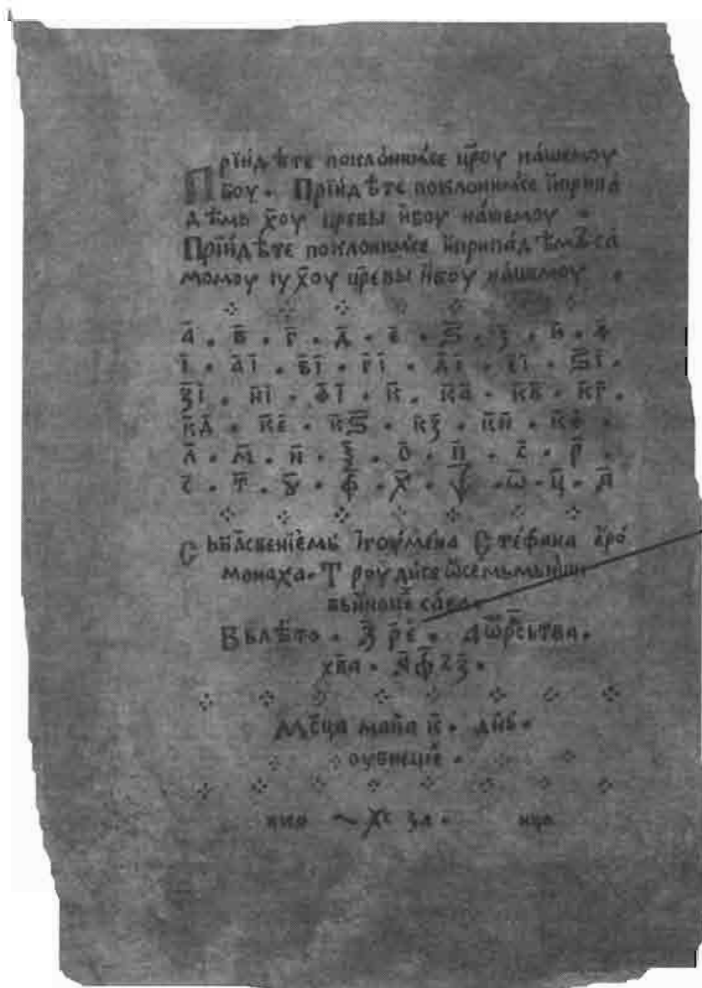 Прїидѣте поклонимсе цр҃оу нашемоу
бг҃оу . Прїидѣте поклонимсе ѝприпа
дѣмь х҃оу цр҃евы ѝбг҃оу нашемоу .
Прїидѣте поклонимсе ѝприпадѣмь са
момоу іу х҃оу цр҃евы ѝбг҃оу нашемоу .
а҃ . в҃ . г҃ . д҃ . е҃ . ѕ҃ . з҃ . и҃ . ѳ҃
і҃ . а҃і . в҃і . г҃і . д҃і . е҃і . ѕ҃і .
з҃і . и҃і . ѳ҃і . к҃ . к҃а . к҃в . к҃г .
к҃д . к҃е . к҃ѕ . к҃з . к҃и . к҃ѳ .
л҃ . м҃ . н҃ . ѯ҃ . о҃ . п҃ . ч҃ . р҃ .
с҃ . т҃ . у҃ . ф҃ . х҃ . ѱ҃ . ѡ . ц҃ . а҃
Сьбл҃свенїемь Їгоумена Стефана ѥро
монаха . Троудисе
Вьлѣто . ҂з҃ р҃е . А ѿ рⷭ҇ьтва .
хв҃а . ҂а҃ ф҃ ѯ҃ з҃ .
Мⷭ҇еца маѝа к҃ . дн҃ь .
оубнецїе .